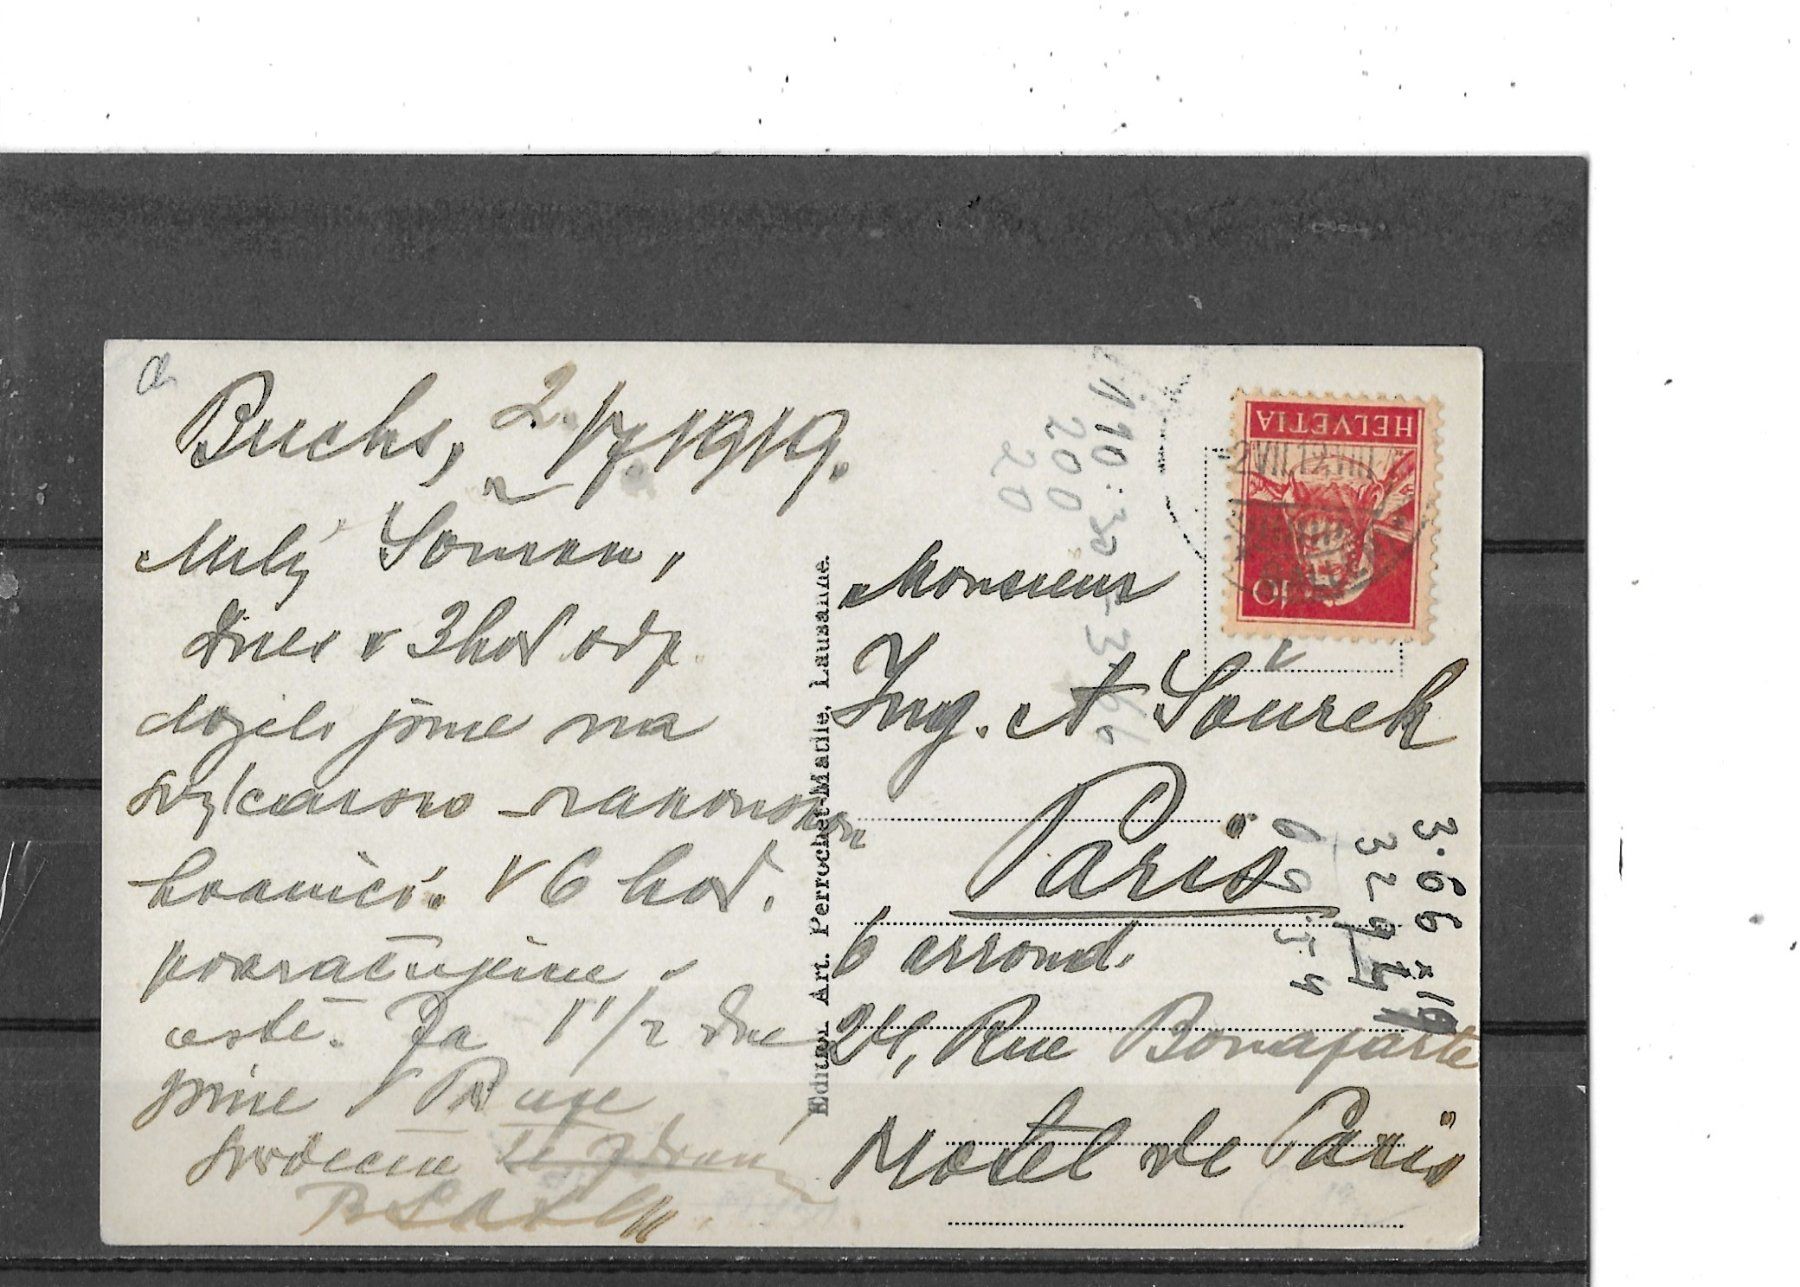 Buchs, 2./7. 1919.
Milý
dnes v 3 hod odp.
dojeli jsme na
švýcarsko rakouskou
hranici. V 6 hod.
pokračujeme v
cestě. Za 1 1/2 dne
jsme v Praze
Srdečně Tě zdraví
Edition Art. Perrochet-Matile, Lausanne.
HELVETIA
10
Monsieur
Ing. A Sourek
Paris
6 arrond.
24, Rue Bonaparte
Hotel de Paris
110:30
200
20
3.66 × 19
3294